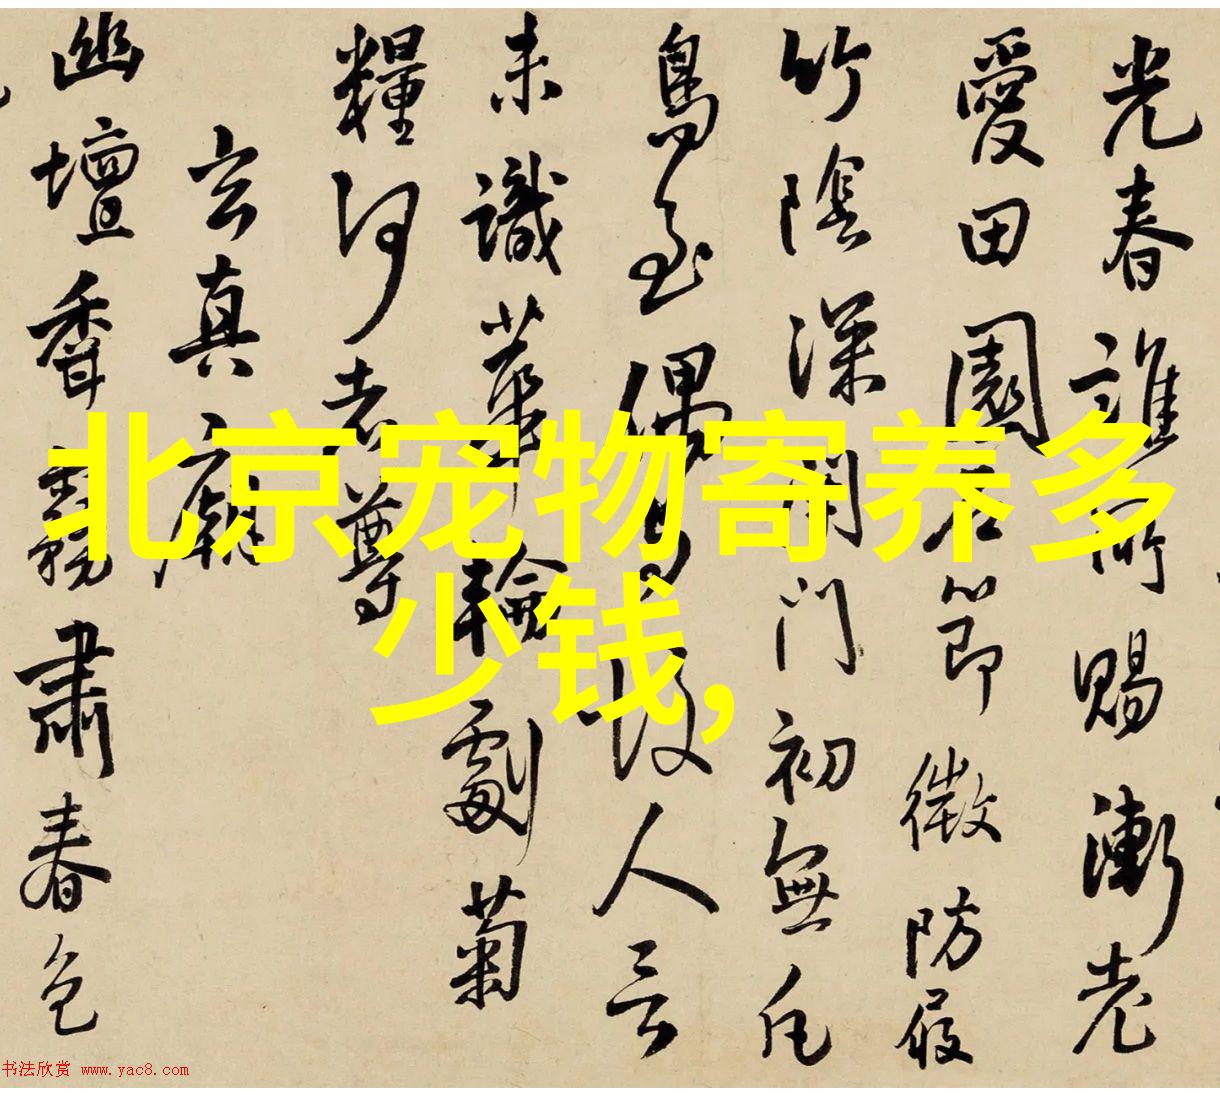 北京宠物寄养多
少钱,
光春誰所賜漸老
愛田園節微防屐
竹陰深門初無凡
鳥至偶故人言
未識華輪劇菊
糧何老尊
玄真廟
幽壇香肅春色
书法欣赏 www.yac8.com